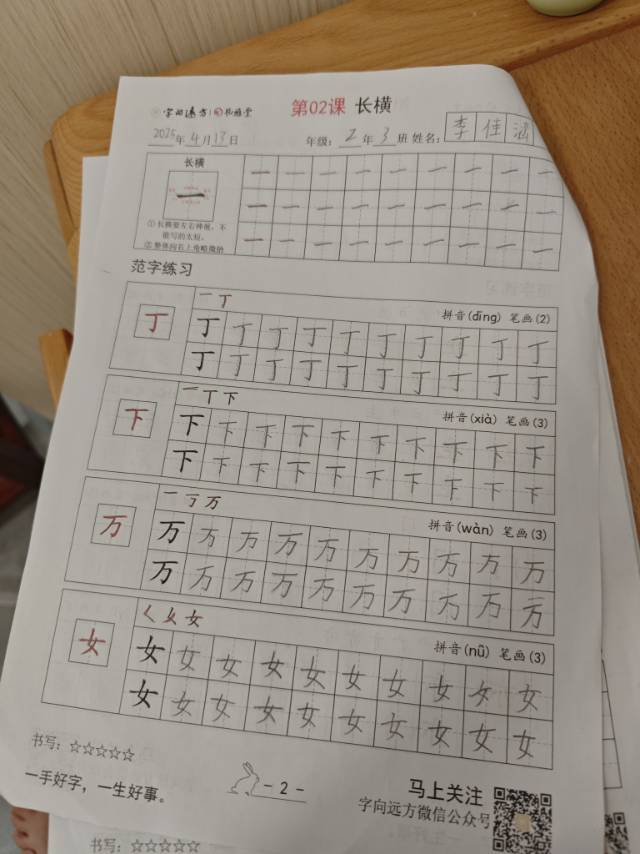 字向远方 第02课 长横
2025年4月17日 年级:2年3班 姓名:李佳涵
长横
一 一 一 一 一 一 一 一 一 一
一 一 一 一 一 一 一 一 一
① 长横要左右伸展,不
能写的太短。
② 整体向右上抬略微倾
一 一 一 一 一 一 一 一 一
范字练习
一丁
拼音(dīng) 笔画(2)
丁 丁 丁 丁 丁 丁 丁 丁 丁 丁 丁
丁 丁 丁 丁 丁 丁 丁 丁 丁 丁
一丅下
拼音(xià) 笔画(3)
下 下 下 下 下 下 下 下 下 下 下
下 下 下 下 下 下 下 下 下 下
一丂万
拼音(wàn) 笔画(3)
万 万 万 万 万 万 万 万 万 万 万
万 万 万 万 万 万 万 万 万 万
く 女
拼音(nǚ) 笔画(3)
女 女 女 女 女 女 女 女 女 女 女
女 女 女 女 女 女 女 女 女 女
书写:☆☆☆☆☆
一手好字,一生好事。
- 2 -
马上关注
字向远方微信公众号
书写:☆☆☆☆☆